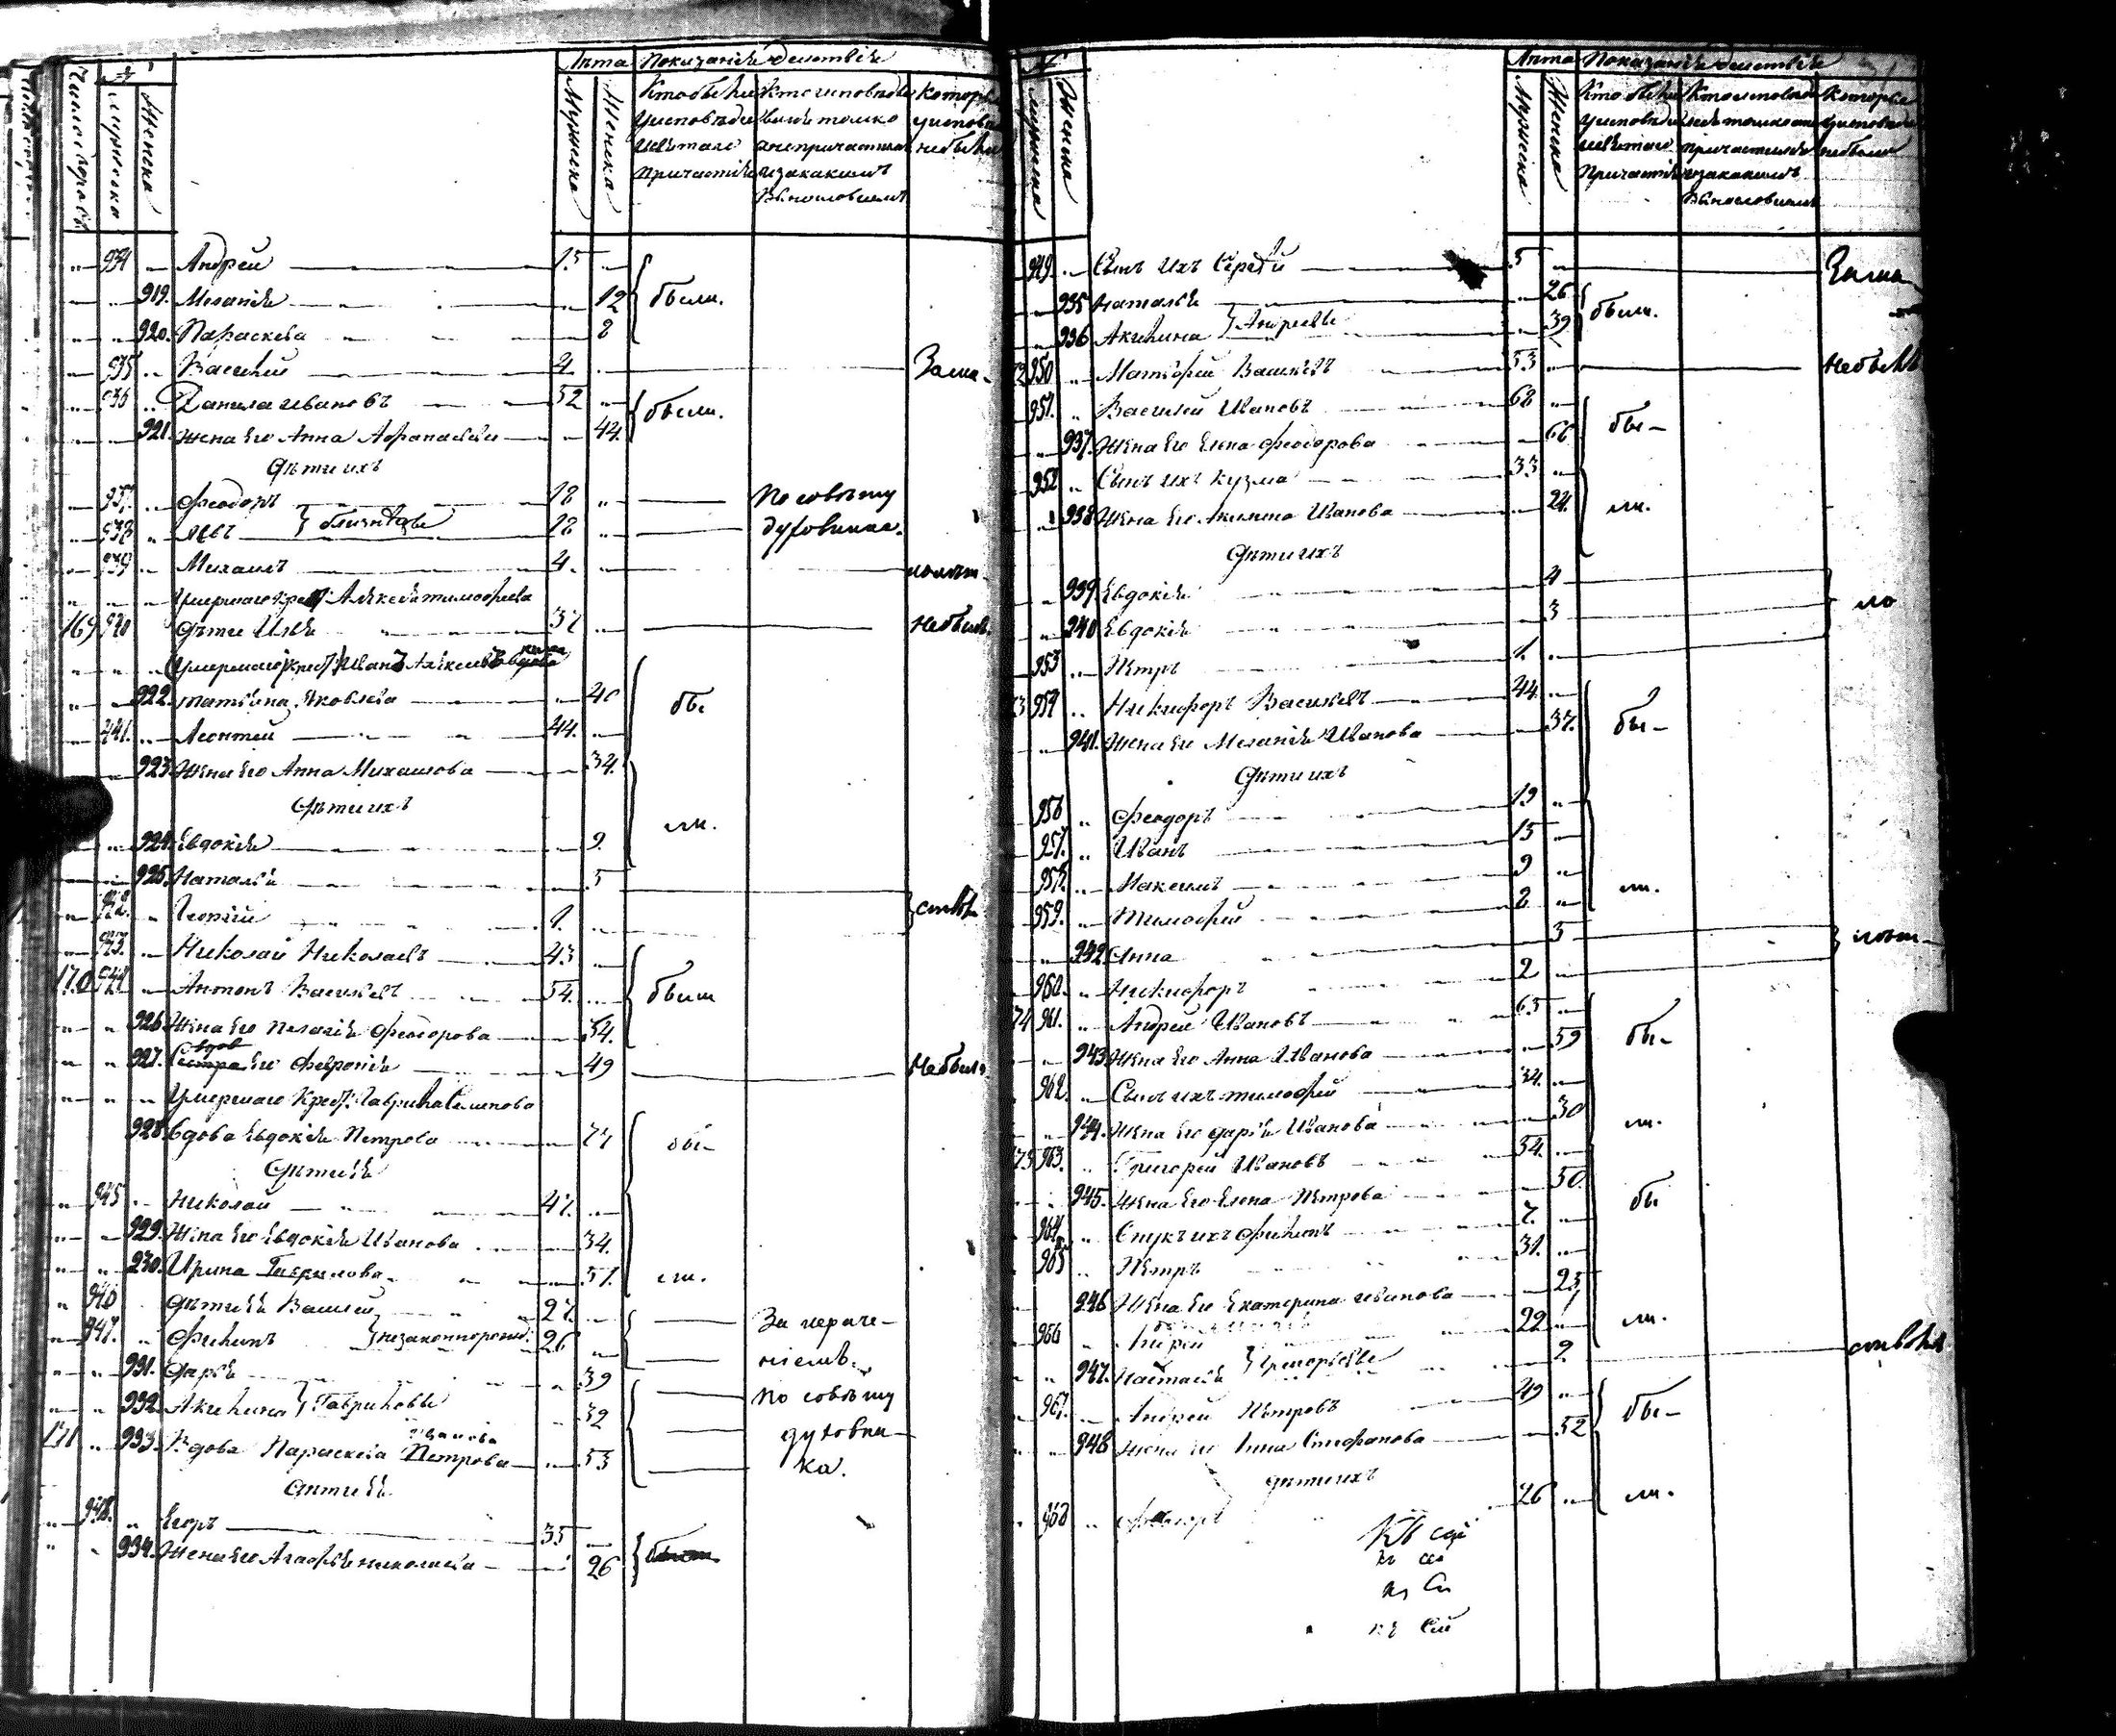 Лѣта Показаніе действія
Число дворовъ
Мужеска
Женска
Мужеска
Женска
Кто были
у исповѣди
и святаго
причастія
Кто исповѣда
лись токмо
а не причастился
и за какимъ
винословіемъ
Которые
у исповѣ
не были
934 Андрей 15
919. Меланія 12 были.
920. Параскева 8
935 Василий 4
936 Данила Ивановъ 52
921. Жена его Анна Афанасьева 44. были.
Дѣти ихъ
937. Феодоръ 18 По совѣту
938. Левъ близнецы 18 духовника.
939 Михаилъ 4.
Умершаго крест. Алексея Тимофеева
169 940 Дѣти Илья 37 Небылъ.
Умершаго крест. Ивана Алексеева вдова
922. Татьяна Яковлева 40 бы
941. Леонтей 44.
923. Жена его Анна Михаилова 34.
Дѣти ихъ ли.
924. Евдокія 9
925. Наталья 5
942. Георгій 1.
943. Николай Николаевъ 43
170 944 Антонъ Васильевъ 54. были
926 Жена его Пелагія Феодорова 54.
927. вдов Сестра его Феврония 49 Небыла.
Умершаго крест. Гаврила Семенова
928. Вдова Евдокія Петрова 77 бы-
Дѣти ея
945 Николай 47.
929. Жена его Евдокія Иванова 34.
930. Ирина Гаврилова 51. ли.
946 Дѣти ея Василей 27. За нераче-
947. Филипъ незаконнорожд. 26 ніемъ.
931. Дарья 39 По совѣту
932. Акилина Гавриловы 32 духовни-
Иванова
171 933. Вдова Параскева Петрова 53 ка.
Дѣти ея
948. Егоръ 35
934. Жена его Агафья Николаева 26 были
Лѣта Показаніе действія
Мужеска
Женска
Мужеска
Женска
Кто были
у исповѣди
и святаго
Причастія
Кто исповѣда
лись токмо а не
причастился
и за какимъ
винословіемъ
Которые
у исповѣди
не были
949. Сынъ ихъ Сергѣй 5
935 Наталья 26 были.
936 Акилина Андреевы 39
950 Матфей Васильевъ 53 Небылъ
951. Василей Ивановъ 68 бы-
937. Жена его Елена Феодорова 66
952 Сынъ ихъ Кузма 33
938 Жена его Акилина Иванова 24. ли.
Дѣти ихъ
939. Евдокія 4
940 Евдокія 3
953 Петръ 1.
954 Никифоръ Васильевъ 44.
941. Жена его Меланія Иванова 37. бы-
Дѣти ихъ
956 Феодоръ 19
957. Иванъ 15
Максимъ 9 ли.
959. Тимофей
942. Анна 5
960. Никифоръ 2
961. Андрей Ивановъ 65
943 Жена его Анна Иванова 59 бы-
962. Сынъ ихъ Тимофей 34.
944. Жена его Дарья Иванова 30 ли.
963. Григорей Ивановъ 54.
945. Жена его Елена Петрова 50. бы
964. Внукъ ихъ Филипъ 7.
965 Петръ 31.
946 Жена его Екатерина Иванова 25
966 Андрей 22 ли.
947. Настасія Григорьевы
967. Андрей Петровъ 49
948 Жена его Анна Стефанова 52 бы-
Дѣти ихъ
968 Феодоръ 26 ли.